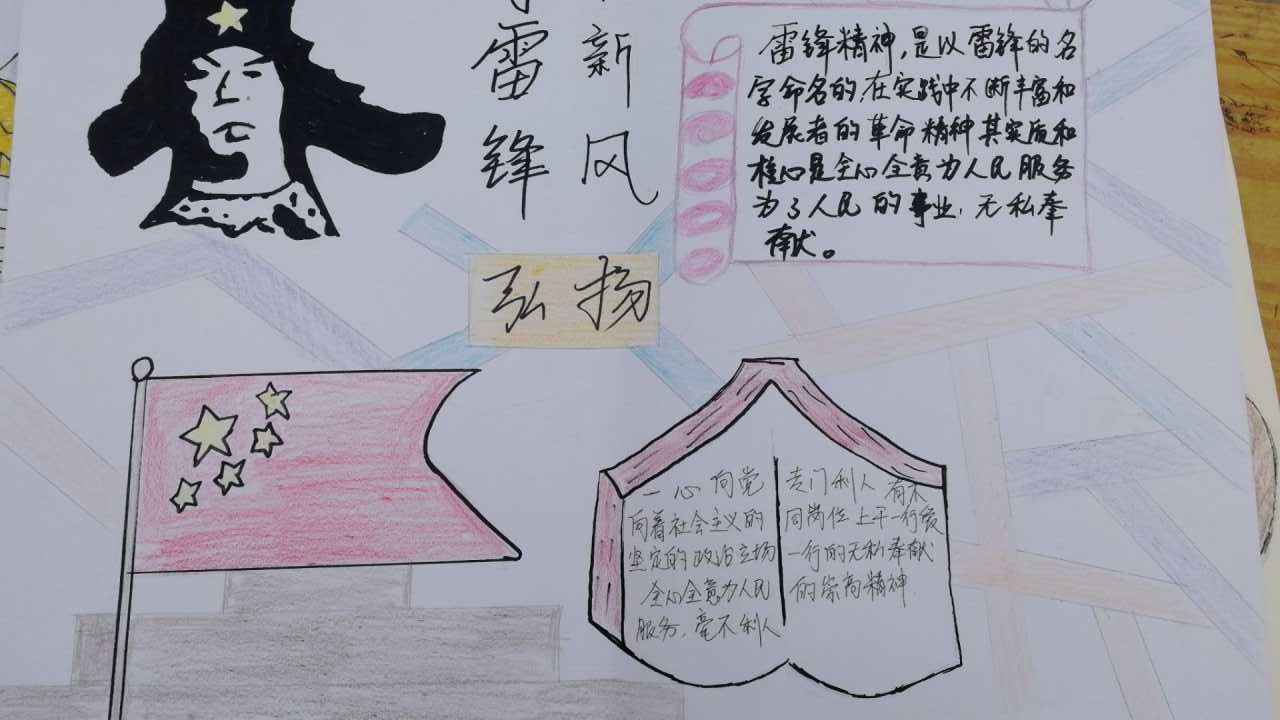 雷锋
新风
雷锋精神,是以雷锋的名
字命名的,在实践中不断丰富和
发展者的革命精神其实质和
核心是全心全意为人民服务
为了人民的事业,无私奉
献。
弘扬
一心向党
向着社会主义的
坚定的政治立场
全心全意为人民
服务,毫不利人
专门利人 有不
同岗位上干一行爱
一行的无私奉献
的崇高精神.